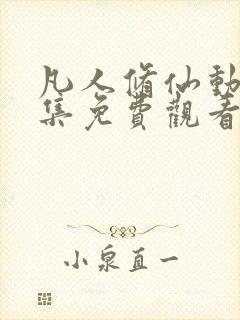 凡人脩仙動
集免費觀看
小泉直一